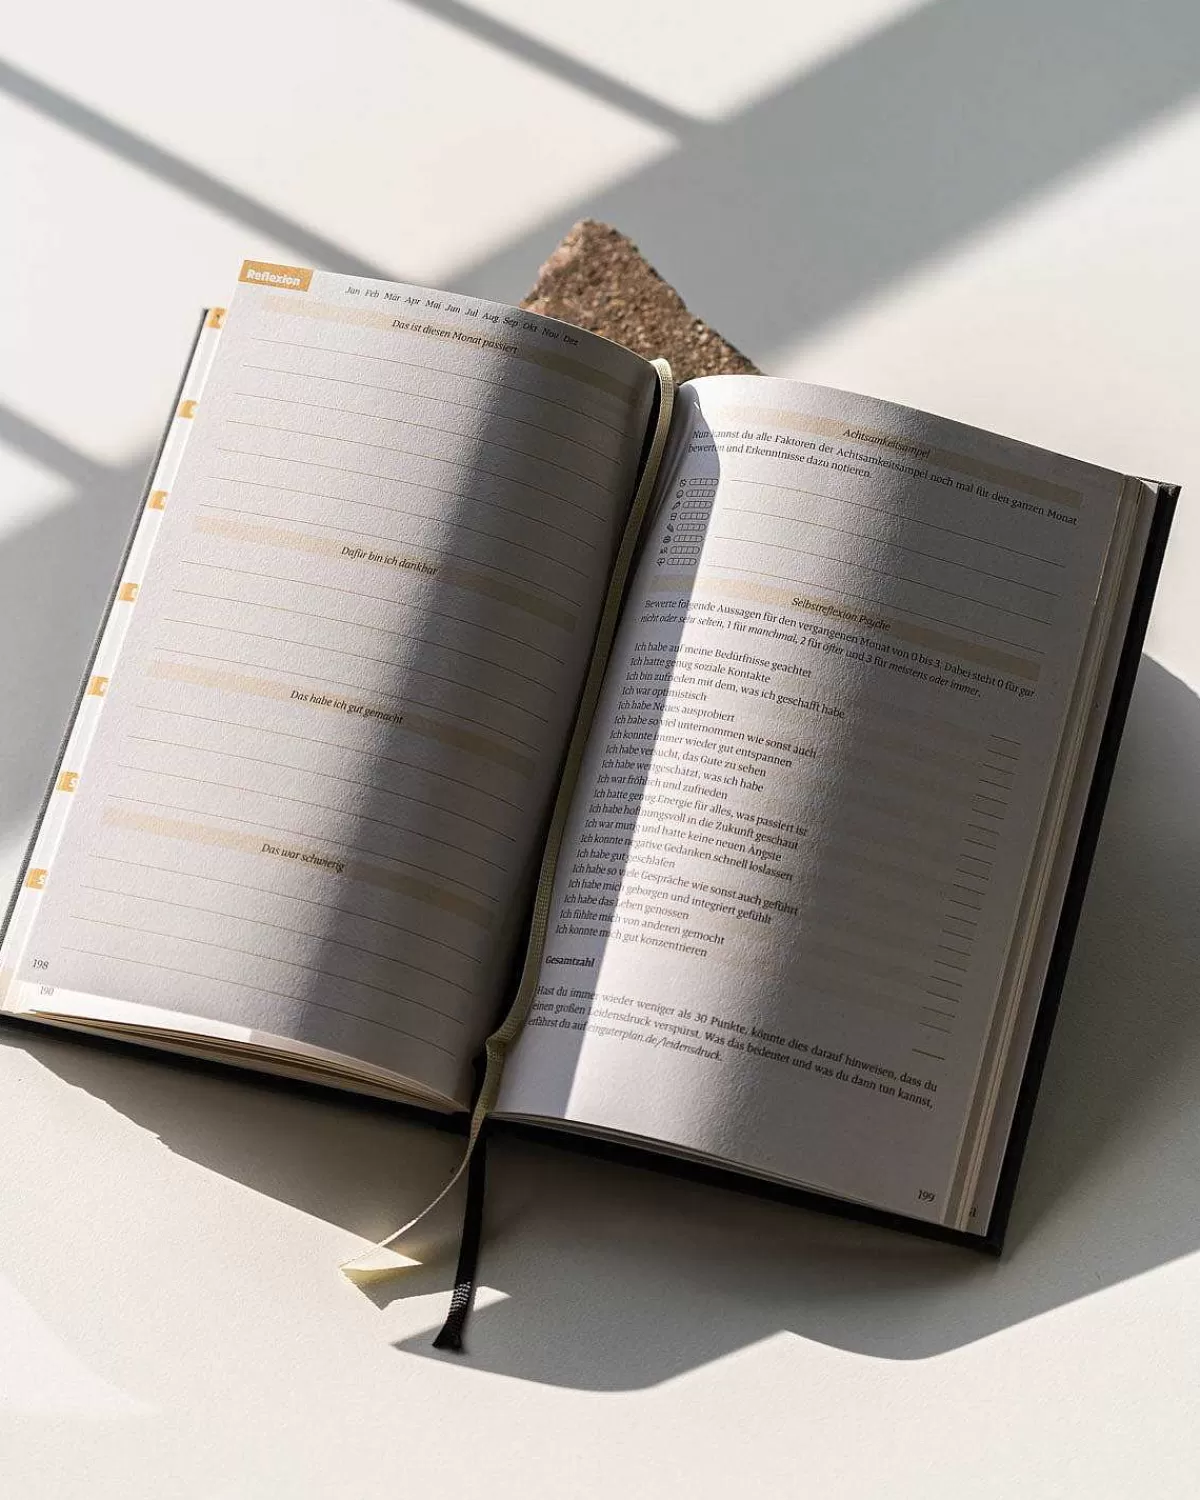 Reflexion
Jan Feb Mär Apr Mai Jun Jul Aug Sep Okt Nov Dez
Das ist diesen Monat passiert
Dafür bin ich dankbar
Das habe ich gut gemacht
Das war schwierig
198
190
Achtsamkeitsampel
Nun kannst du alle Faktoren der Achtsamkeitsampel noch mal für den ganzen Monat
bewerten und Erkenntnisse dazu notieren.
Selbstreflexion Psyche
Bewerte folgende Aussagen für den vergangenen Monat von 0 bis 3. Dabei steht 0 für gar
nicht oder sehr selten, 1 für manchmal, 2 für öfter und 3 für meistens oder immer.
Ich habe auf meine Bedürfnisse geachtet
Ich hatte genug soziale Kontakte
Ich bin zufrieden mit dem, was ich geschafft habe
Ich war optimistisch
Ich habe Neues ausprobiert
Ich habe so viel unternommen wie sonst auch
Ich konnte immer wieder gut entspannen
Ich habe versucht, das Gute zu sehen
Ich habe wertgeschätzt, was ich habe
Ich war fröhlich und zufrieden
Ich hatte genug Energie für alles, was passiert ist
Ich habe hoffnungsvoll in die Zukunft geschaut
Ich war mutig und hatte keine neuen Ängste
Ich konnte negative Gedanken schnell loslassen
Ich habe gut geschlafen
Ich habe so viele Gespräche wie sonst auch geführt
Ich habe mich geborgen und integriert gefühlt
Ich habe das Leben genossen
Ich fühlte mich von anderen gemocht
Ich konnte mich gut konzentrieren
Gesamtzahl
Hast du immer wieder weniger als 30 Punkte, könnte dies darauf hinweisen, dass du
einen großen Leidensdruck verspürst. Was das bedeutet und was du dann tun kannst,
erfährst du auf einguterplan.de/leidensdruck.
199